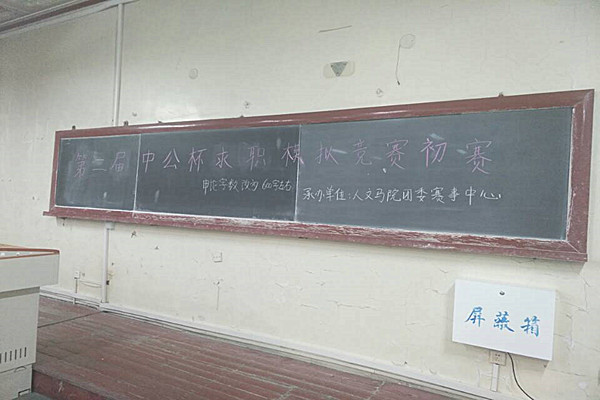 第二届中公杯求职模拟竞赛初赛
申论字数改为600字左右
承办单位:人文马院团委赛事中心
屏蔽箱